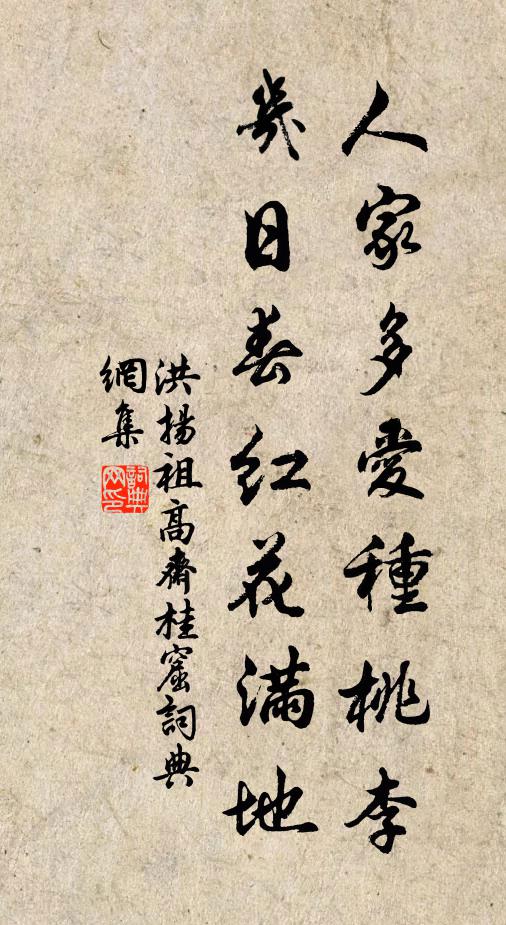 人家多愛種桃李
幾日春紅花滿地
洪揚祖高齋桂窟詞典
網集
詞典
网印